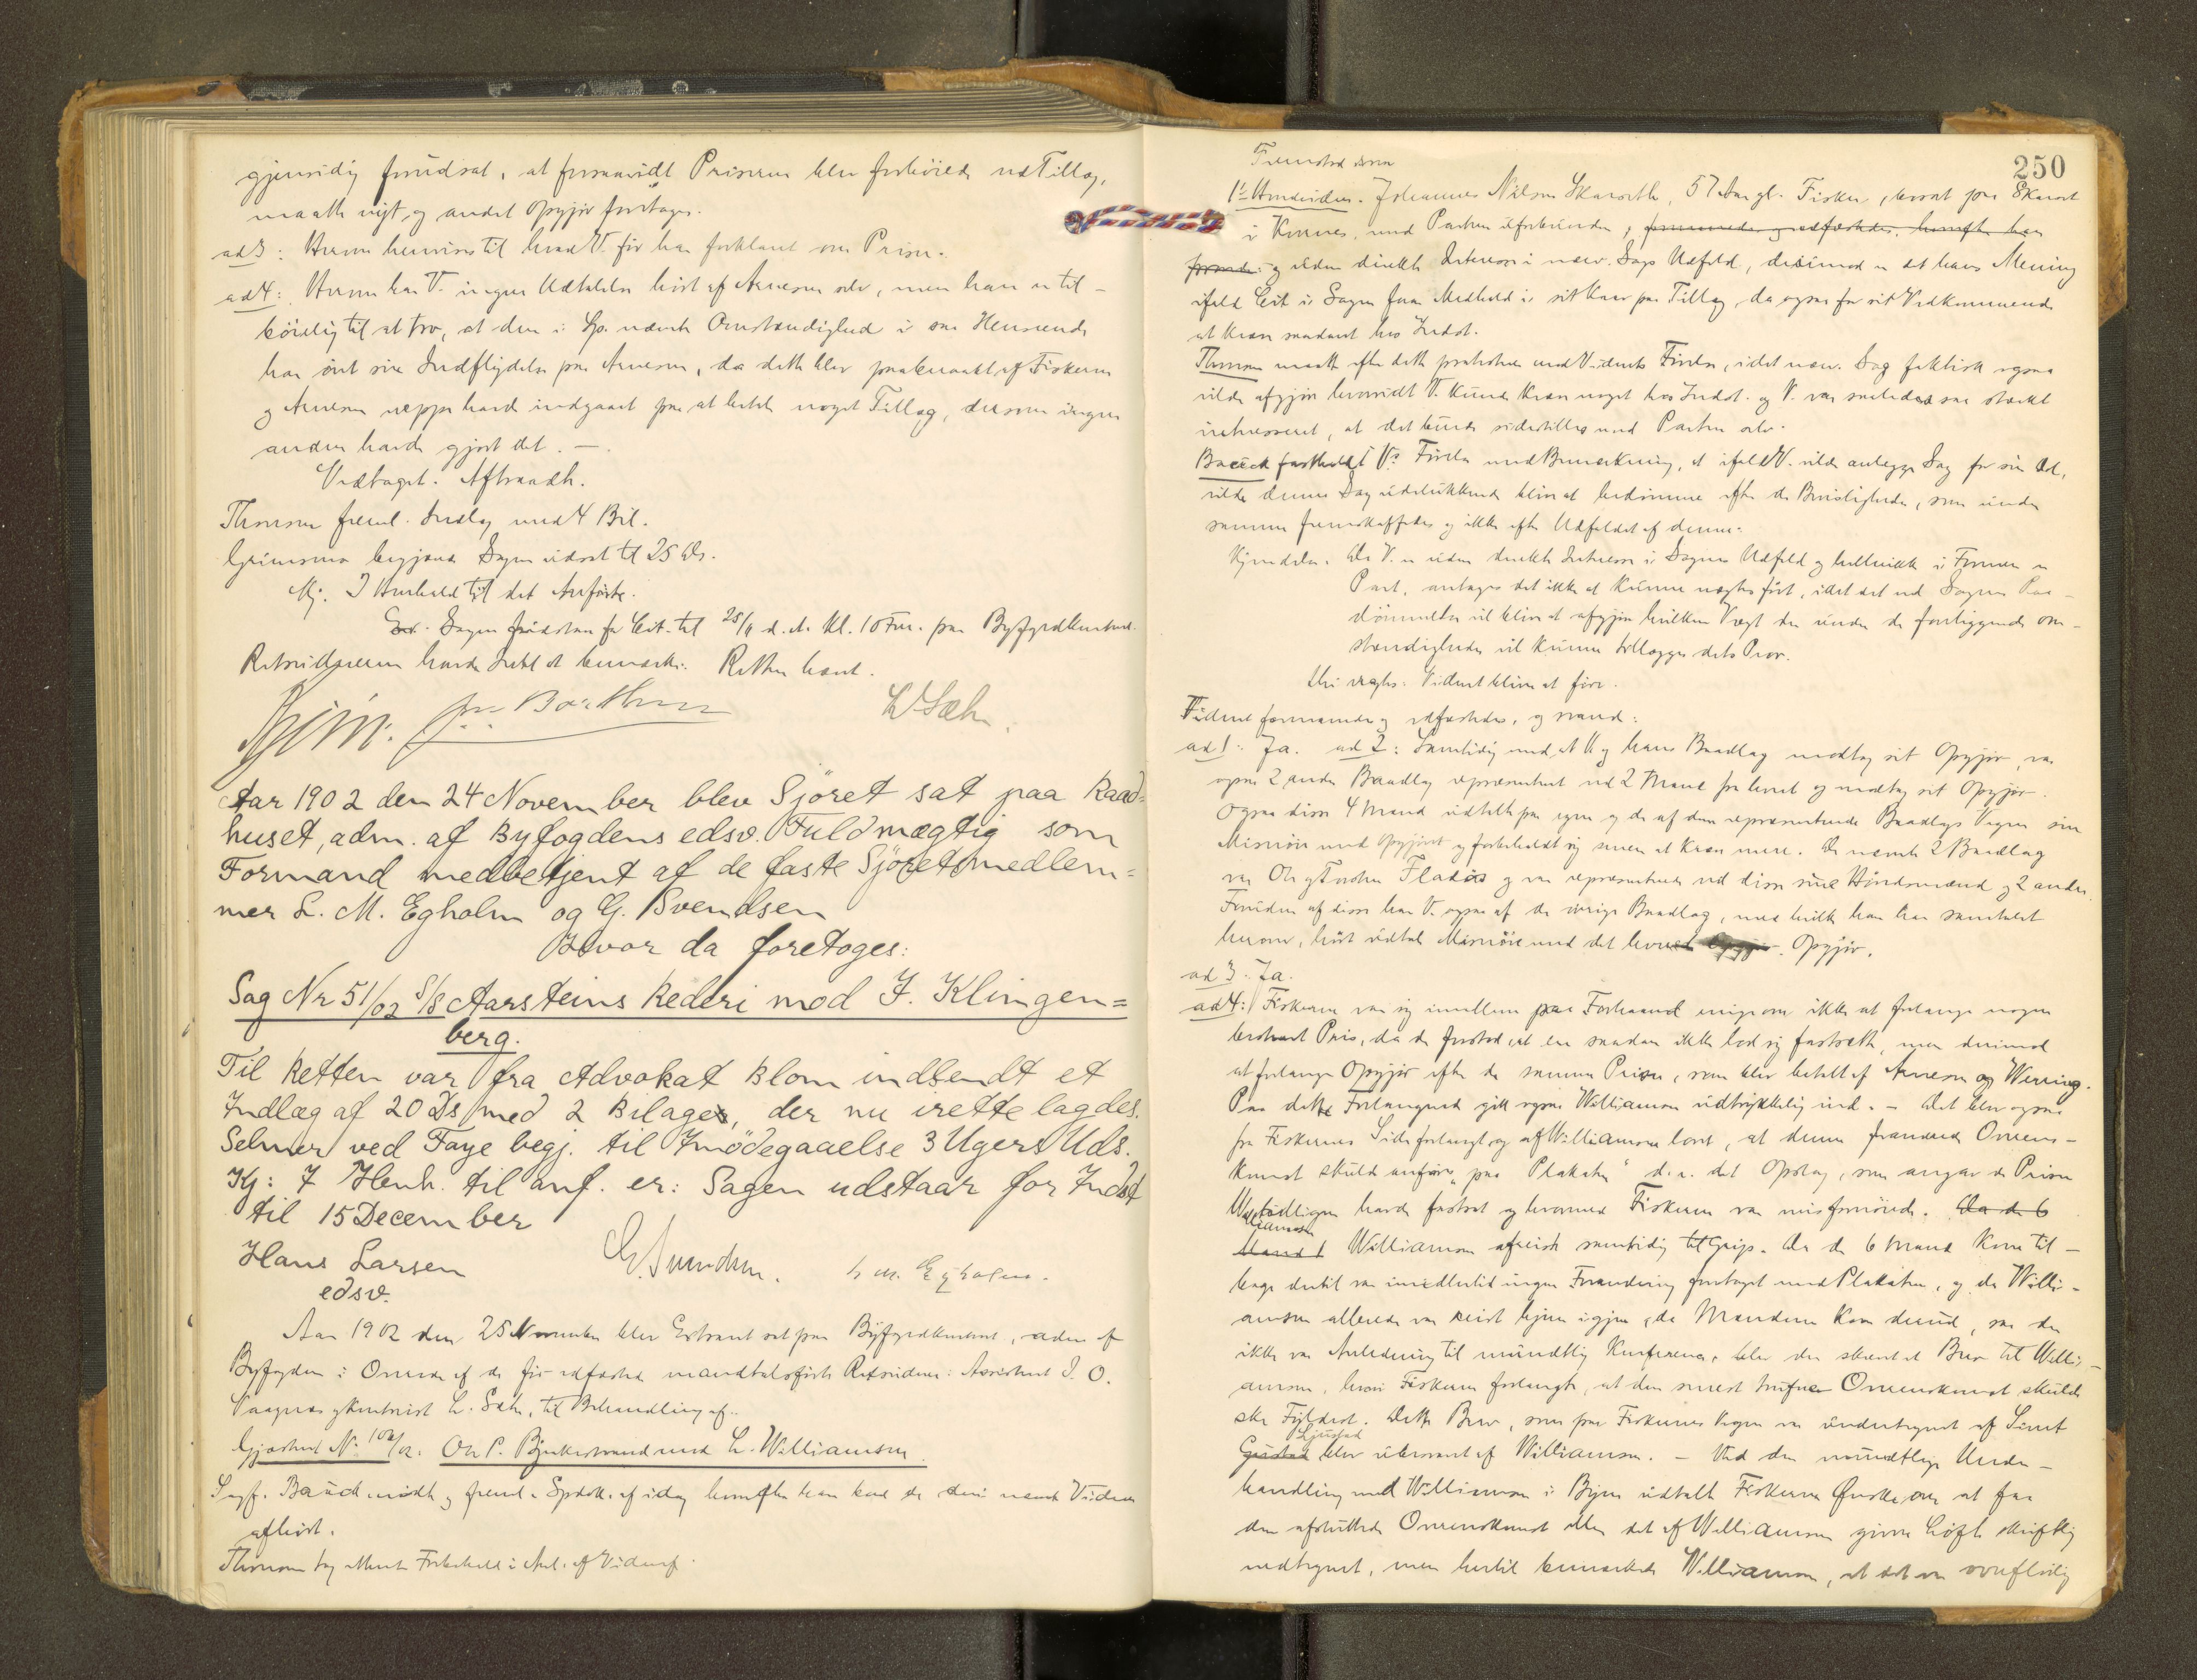 gjensidig forudsat, at forsaavidt Priserne blev forhøiede ved Tillæg,
maatte nyt og andet Opgjør foretages.
ad 3: Herom henvises til hvad V. før har forklaret om Prisen.
ad 4: Herom har V. ingen Udtalelse hørt af Arnesen selv, men han er til-
bøielig til at tro, at den i Sp. nævnte Omstændighed i saa Henseende
har øvet sin Indflydelse paa Arnesen, da dette blev paaberaabt af Fiskerne
og Arnesen neppe havde indgaaet paa at betale noget Tillæg, dersom ingen
anden havde gjort det. —
Vedtaget. Aftraadte.
Thomsen freml. Indlæg med 4 Bil.
Grimsmo begjærede Sagen udsat til 25 ds.
Kj. I Henhold til det Anførte.
Sagen udstaar for Cit. til 25/11 d. A. Kl. 10 Form. paa Byfogdkontoret.
Retsvidnerne havde Intet at bemærke. Retten hævet.
L. Sæh.
Aar 1902 den 24 November blev Sjøret sat paa Raad=
huset, adm. af Byfogdens edsv. Fuldmægtig som
Formand medbetjent af de faste Sjøretsmedlem=
mer L. M. Egholm og G. Svendsen
Hvor da foretoges:
Sag Nr 51/02 S/S Aarsteins Rederi mod J. Klingen=
berg.
Til Retten var fra Advokat Blom indsendt et
Indlæg af 20 Ds med 2 Bilager, der nu irettelagdes.
Selmer ved Faye begj. til Imødegaaelse 3 Ugers Uds.
Kj: I Henh. til anf. er: Sagen udstaar for Indst
til 15 December
Hans Larsen
edsv.
G. Svendsen. L. M. Egholm.
Aar 1902 den 25 November blev Extraret sat paa Byfogdkontoret, adm. af
Byfogden i Overvær af de før edfæstede mandtalsførte Retsvidner: Assistent J. O.
Vaagnæs og Kontorist L. Sæh, til Behandling af
Gjæsteret No 102/02: Ole P. Bjerkestrand mod L. Williamsen
Sagf. Bauck mødte og freml. Spdok. af idag hvorefter han bad de deri nævnte Vidner
afhørt.
Thomsen tog Alment Forbehold i Anl. af Vidnerf.
250
Fremstod som
1ste Hovedvidne. Johannes Nilsen Skarseth, 57 Aar gl. Fisker, boesat paa Skaret
i Kornes, med Parten uforbunden, formanedes og edfæstedes, hvorefter han
og uden direkte Interesse i nærv. Sags Udfald, derimod er det hans Mening
ifald Cit. i Sagen faar Medhold i sit Krav paa Tillæg, da ogsaa for sit Vedkommende
at kræve saadant hos Indst.
Thomsen maatte efter dette protestere mod Vidnets Førelse, idet nærv. Sag faktisk ogsaa
vilde afgjøre hvorvidt V. kunde kræve noget hos Indst. og V. var saaledes saa stærkt
interesseret, at det kunde sidestilles med Parten selv.
Bauck fastholdt Vs Førelse med Bemærkning, at ifald V. vilde anlægge Sag for sin Del,
vilde denne Sag udelukkende blive at bedømme efter de Bevisligheder, som under
samme fremskaffedes og ikke efter Udfaldet af denne.
Kjendelse. Da V. er uden direkte Interesse i Sagens Udfald og heller ikke i Formen er
Part, antages det ikke at kunne nægtes ført, idet det ved Sagens Paa-
dømmelse vil blive at afgjøre hvilken Vægt der under de foreliggende om-
stændigheder vil kunne tillægges dets Prov.
Thi eragtes: Vidnet bliver at føre.
Vidnet formanedes og edfæstedes, og svared:
ad 1: Ja. ad 2: Samtidig med, at V. og hans Baadlag modtog sit Opgjør, var
ogsaa 2 andre Baadlag repræsenteret ved 2 Mand fra hvert og modtog sit Opgjør.
Ogsaa disse 4 Mand udtalte paa egne og de af dem repræsenterede Baadlags Vegne sin
Misnøie med Opgjøret og forbeholdt sig senere at kræve mere. De nævnte 2 Baadlag
var Ole og Torsten Fladøs og var repræsenterede ved disse sine Høvedsmænd og 2 andre.
Foruden af disse har V. ogsaa af de øvrige Baadlag, med hvilke han har samtalet
herom, hørt udtale Misnøie med det hvert Opgjør. Opgjør.
ad 3: Ja.
ad 4: Fiskerne var sig imellem paa Forhaand enige om ikke at forlange nogen
bestemt Pris, da de forstod, at en saadan ikke lod sig fastsætte, men derimod
at forlange Opgjør efter de samme Priser, som blev betalt af Arnesen og Werring.
Paa dette Forlangende gik ogsaa Williamsen udtrykkelig ind. — Det blev ogsaa
fra Fiskernes Side forlangt, og af Williamsen lovet, at denne forandrede Overens-
komst skulde anføres „paa Plakaten" d.e. det Opslag, som angav de Priser
havde fastsat og hvormed Fiskerne var misfornøiede. Da de 6
Williamsen
Mand Williamsen afreiste samtidig til Grip. Da de 6 Mand kom til-
bage dertil var imidlertid ingen Forandring foretaget med Plakaten, og da Willi-
amsen allerede var reist hjem igjen, da Mændene kom derud, saa der
ikke var Anledning til mundtlig Konferance, blev der skrevet et Brev til Willi-
amsen, hvori Fiskerne forlangte, at den senest trufne Overenskomst skulde
ske Fyldest. Dette Brev, som paa Fiskernes Vegne var undertegnet af Sivert
Gjustad
Gustad blev ubesvaret af Williamsen. — Ved den mundtlige Under-
handling med Williamsen i Byen udtalte Fiskerne Ønske om at faa
den afsluttede Overenskomst eller det af Williamsen givne Løfte skriftlig
nedtegnet, men hertil bemærkede Williamsen, at det var overflødig